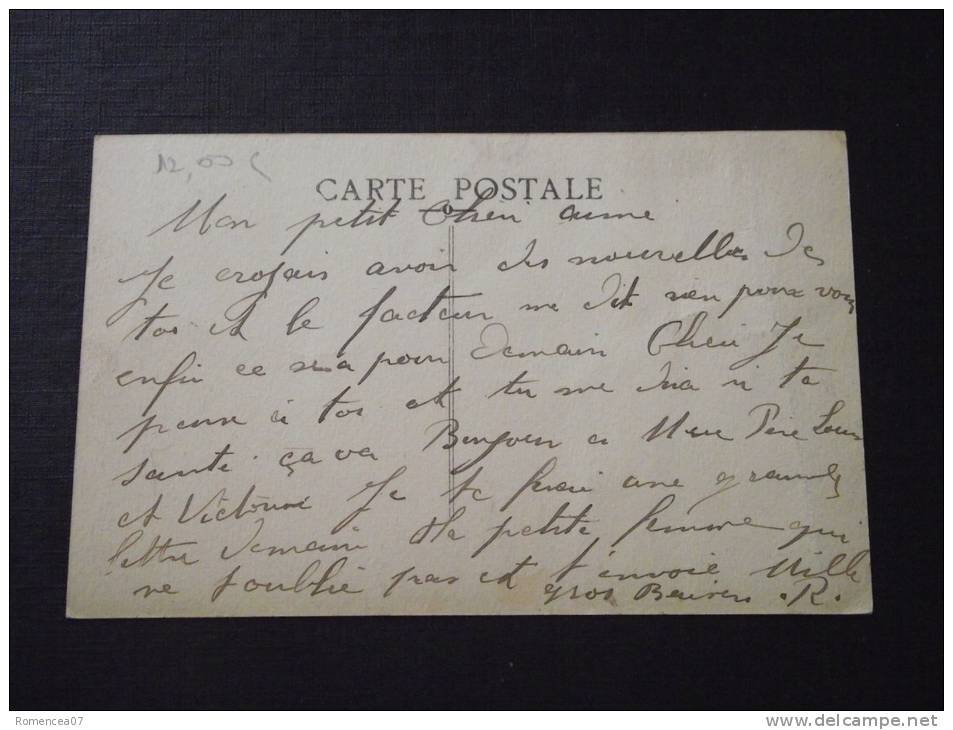 12,00 €
CARTE POSTALE
Mon petit Cheri aimé
Je croyais avoir des nouvelles de
toi et le facteur me dit rien pour vous
enfin ce sera pour demain Cheri Je
pense à toi et tu me dira si ta
santé ça va Bonjour a Mere Père Louis
et Victorine Je te ferai une grande
lettre demain Ta petite femme qui
ne t'oublie pas et t'envoie Mille
gros Baisers . R.
Romencea07
www.delcampe.net